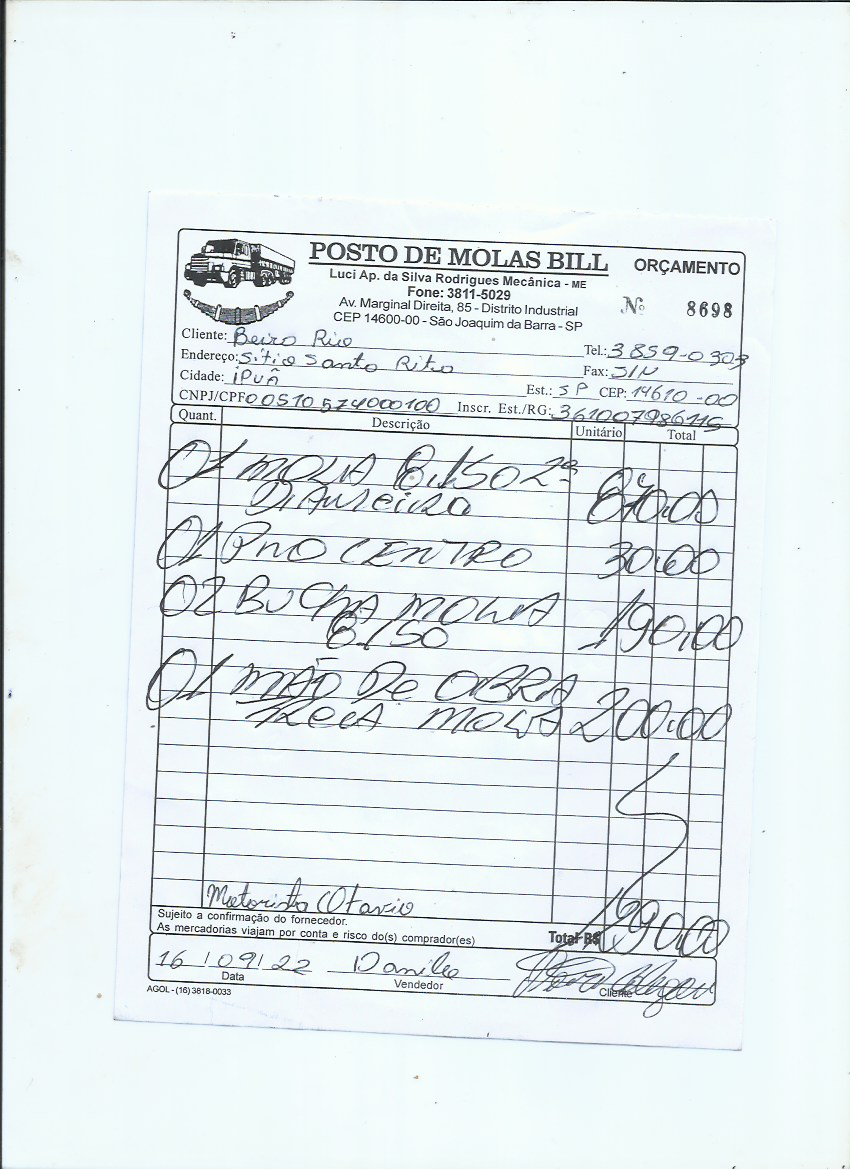 POSTO DE MOLAS BILL
ORÇAMENTO
Luci Ap. da Silva Rodrigues Mecânica - ME
Fone: 3811-5029
Av. Marginal Direita, 85 - Distrito Industrial
CEP 14600-00 - São Joaquim da Barra - SP
Nº 8698
Cliente: Beira Rio
Tel.: 3859-0303
Endereço: Sitio Santa Rita
Fax: S/N
Cidade: IPUÃ
Est.: SP CEP: 14610-00
CNPJ/CPF 00510574000100 Inscr. Est./RG: 361007986115
Quant. Descrição Unitário Total
01 MOLA 8.150 2ª
DIANTEIRA 870,00
01 PINO CENTRO 30,00
02 BUCHA MOLA
8.150 190,00
01 MÃO DE OBRA
TROCA MOLA 200,00
Motorista Otavio
Sujeito a confirmação do fornecedor.
As mercadorias viajam por conta e risco do(s) comprador(es)
Total R$ 1290,00
16/09/22 Danilo
Data Vendedor Cliente
AGOL - (16) 3818-0033